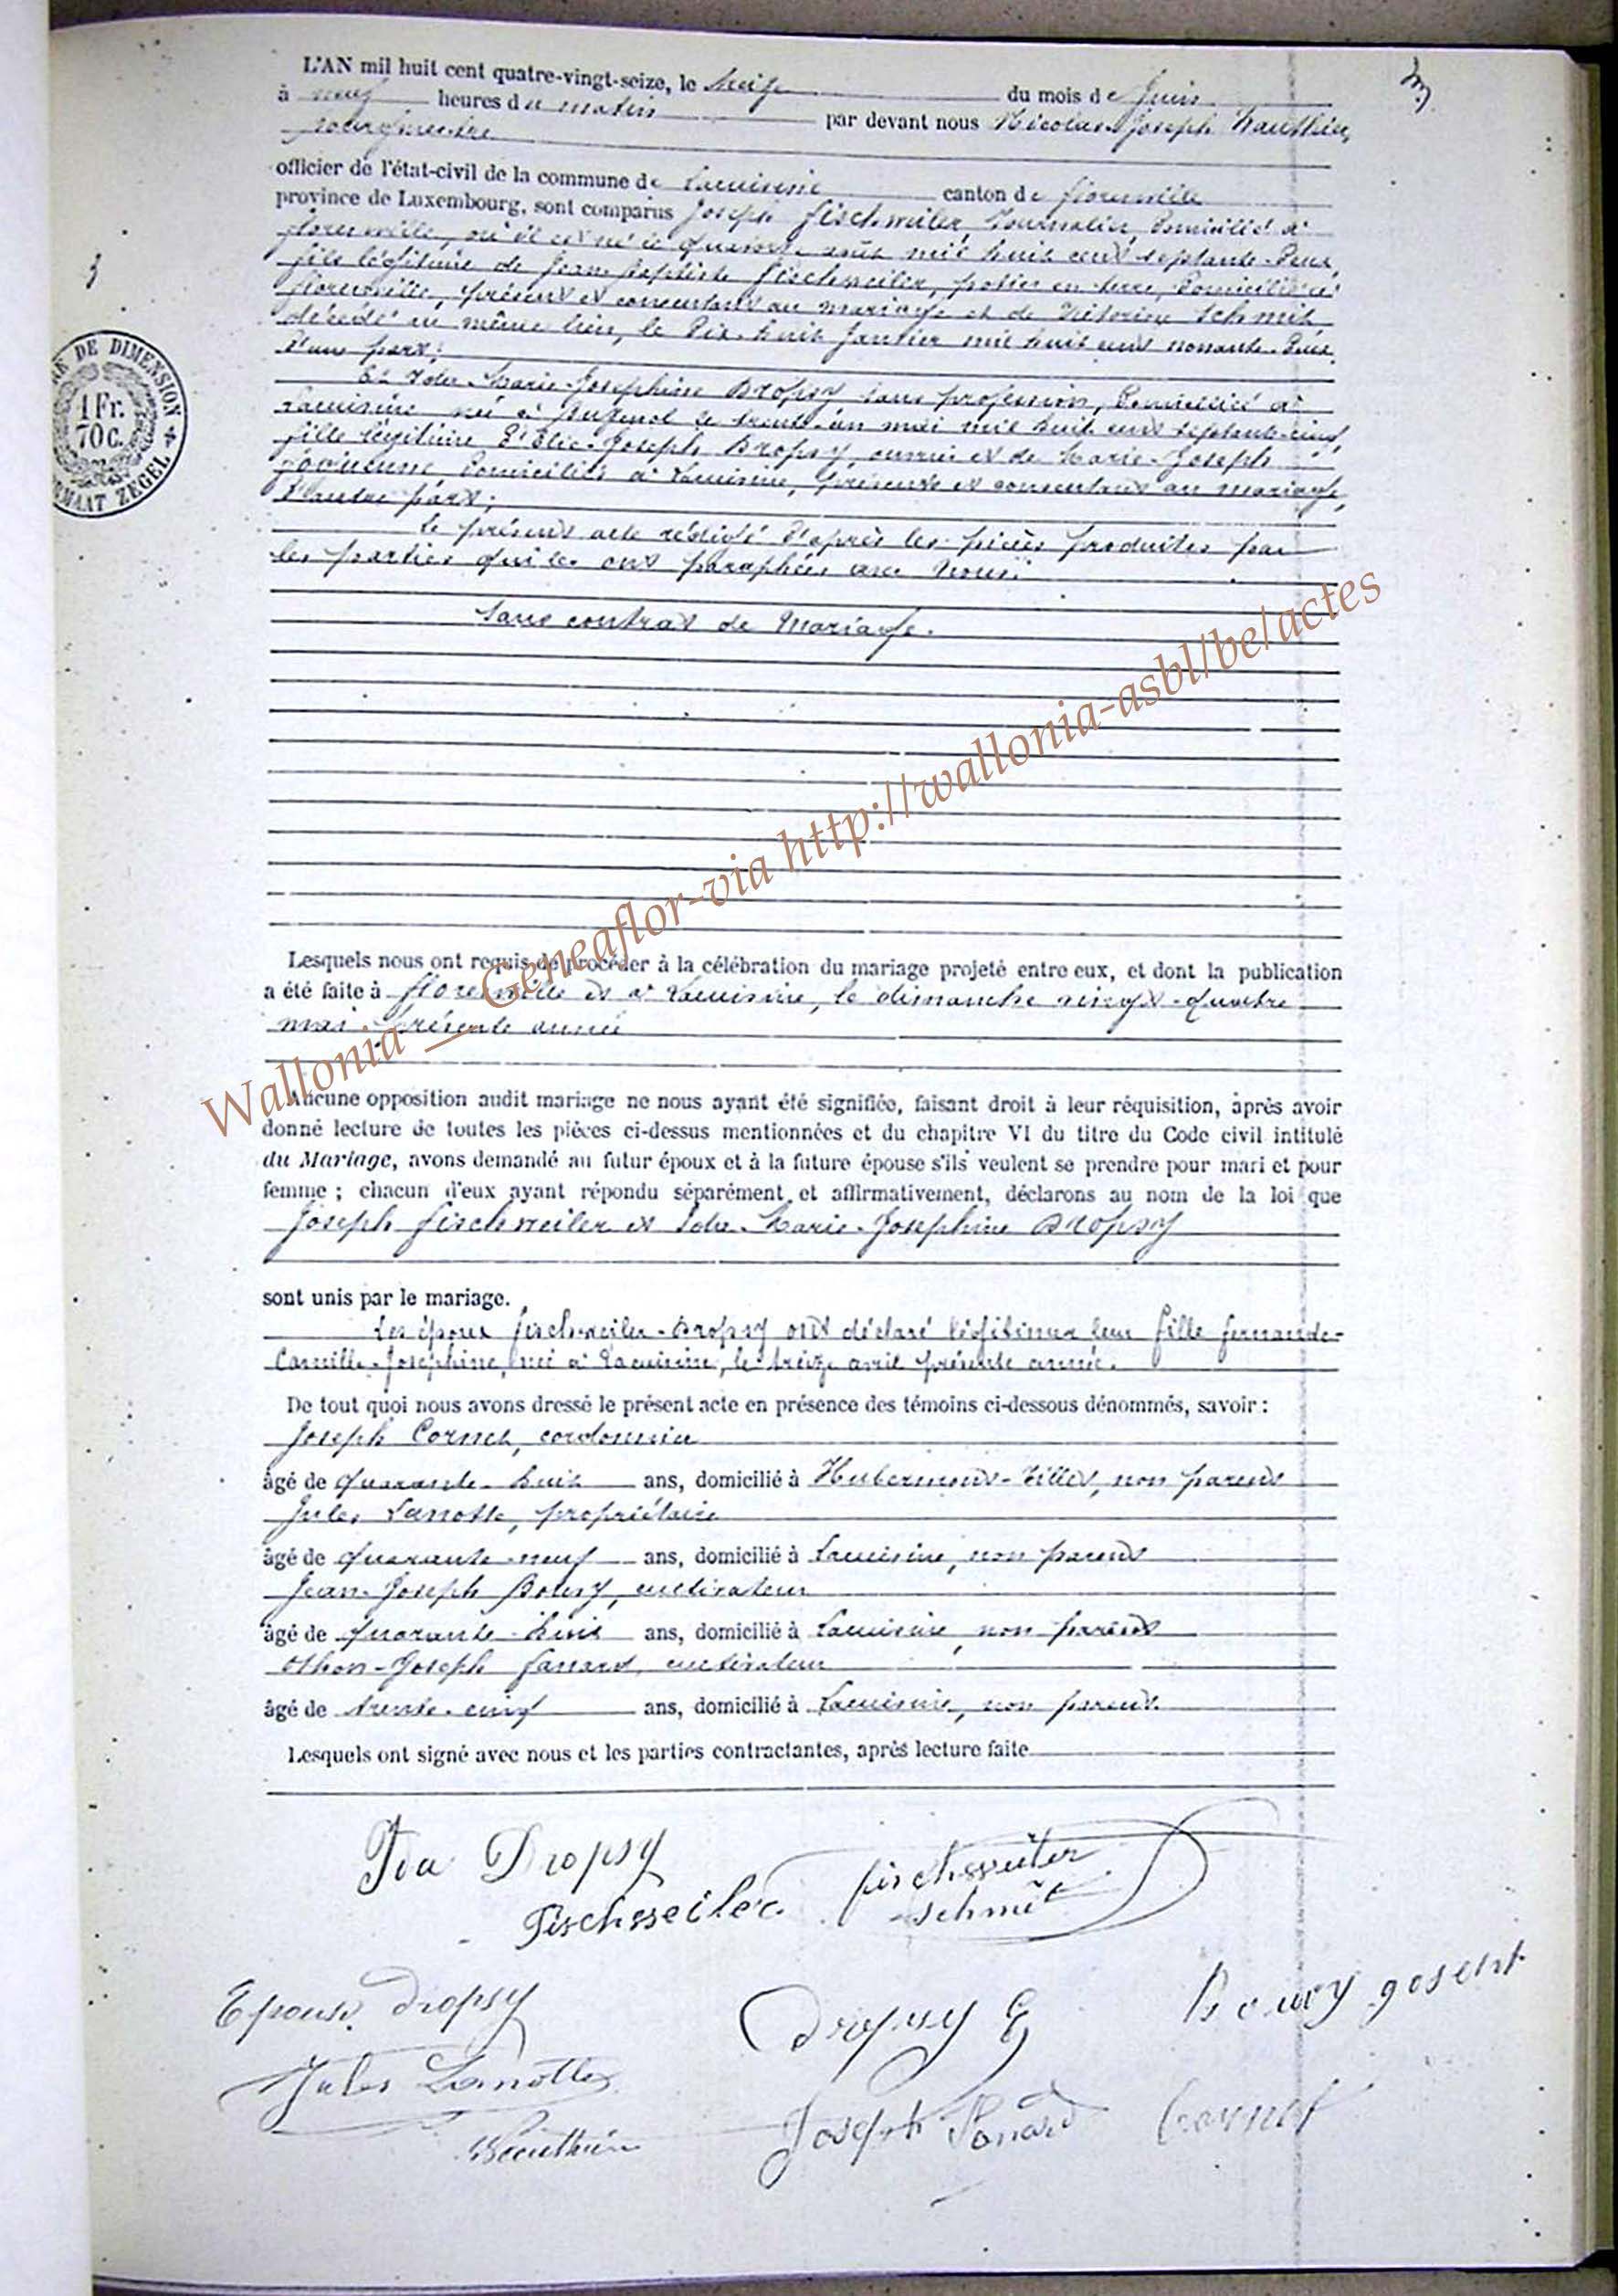 3
L'AN mil huit cent quatre-vingt-seize, le du mois de Juin
à neuf heures du matin par devant nous Nicolas-Joseph Wauthier,
bourgmestre
officier de l'état-civil de la commune de Lacuisine canton de florenville
province de Luxembourg, sont comparus Joseph fischweiler, Journalier, domicilié à
florenville, où il est né le quinze août mil huit cent septante-deux,
fils légitime de Jean-Baptiste fischweiler, potier en terre, domicilié à
florenville, présent et consentant au mariage et de Victorine Schmit,
décédé au même lieu, le dix-huit Janvier mil huit cent nonante-deux,
d'une part;
Et Ida-Marie-Joséphine Dropsy sans profession, domiciliée à
Lacuisine née à le trente-un mai mil huit cent septante-cinq,
fille légitime d'Elie-Joseph Dropsy, ouvrier et de Marie-Joseph
domiciliés à Lacuisine, présents et consentants au mariage,
d'autre part;
Le présent acte rédigé d'après les pièces produites par
les parties qui les ont paraphées avec nous.
Sans contrat de Mariage.
3
RE DE DIMENSION
1 Fr.
70 c.
MAAT ZEGEL
Lesquels nous ont requis de procéder à la célébration du mariage projeté entre eux, et dont la publication
a été faite à florenville et à Lacuisine, le dimanche vingt-quatre
mai présente année
Aucune opposition audit mariage ne nous ayant été signifiée, faisant droit à leur réquisition, après avoir
donné lecture de toutes les pièces ci-dessus mentionnées et du chapitre VI du titre du Code civil intitulé
du Mariage, avons demandé au futur époux et à la future épouse s'ils veulent se prendre pour mari et pour
femme ; chacun d'eux ayant répondu séparément et affirmativement, déclarons au nom de la loi que
Joseph fischweiler et Ida-Marie-Joséphine Dropsy
sont unis par le mariage.
Les époux fischweiler-Dropsy ont déclaré légitimer leur fille fernande-
Camille-Joséphine, née à Lacuisine, le treize avril présente année.
De tout quoi nous avons dressé le présent acte en présence des témoins ci-dessous dénommés, savoir :
Joseph Cornet, cordonnier
âgé de quarante-huit ans, domicilié à Hubermont-Tillet, non parent
Jules Lanotte, propriétaire
âgé de quarante-neuf ans, domicilié à Lacuisine, non parent
Jean-Joseph Boury, cultivateur
âgé de quarante-huit ans, domicilié à Lacuisine, non parent
Othon-Joseph Sanard, cultivateur
âgé de trente-cinq ans, domicilié à Lacuisine, non parent.
Lesquels ont signé avec nous et les parties contractantes, après lecture faite
Ida Dropsy
Fischweiler fischweiler
schmit
Epouse Dropsy Dropsy E Boury joseph
Jules Lanotte Joseph Sanard Cornet
Wauthier
Wallonia__Geneaflor-via http://wallonia-asbl/be/actes